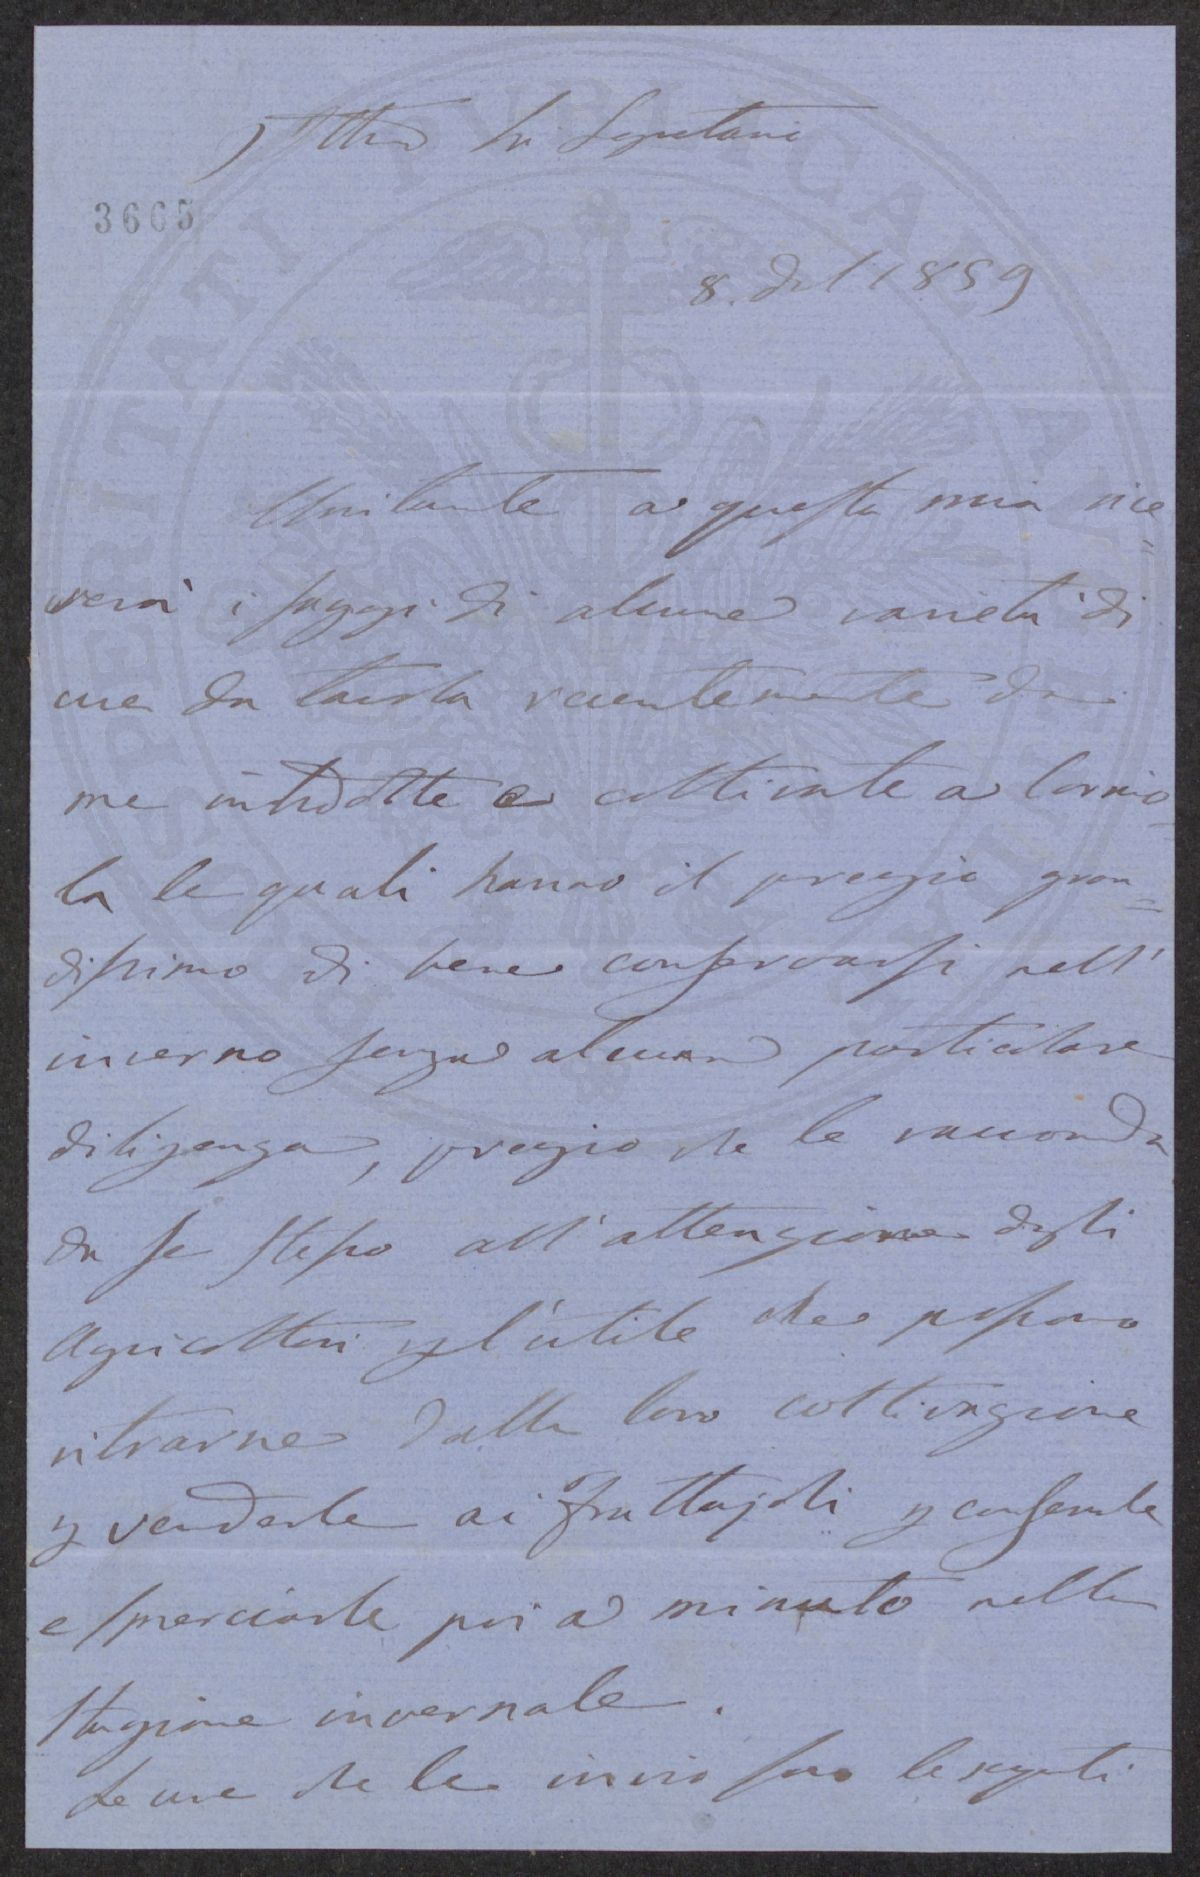 Ottmo Sr Segretario
3665
8. del 1859
Unitante a questa mia rice=
verà i saggi di alcune varietà di
uve da tavola recentemente da
me introdotte e coltivate a Cornio=
la le quali hanno il pregio gran=
dissimo di bene conservarsi nell'
inverno senza alcuna particolare
diligenza, pregio che le raccomanda
da se stesso all'attenzione degli
Agricoltori pl'utile che possono
ritrarne dalla loro coltivazione
p venderle ai fruttajoli p conservarle
e smerciarle poi a minuto nella
stagione invernale.
Le uve che le invio sono le seguenti
PROSPERITATI PUBLICAE AUGENDAE